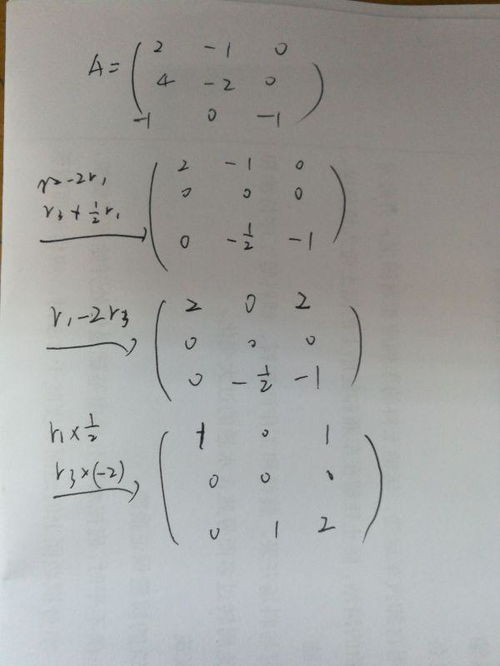 A = ( 2 -1 0
4 -2 0
-1 0 -1 )
r2-2r1 ( 2 -1 0
r3+1/2r1 0 0 0
0 -1/2 -1 )
r1-2r3 ( 2 0 2
0 0 0
0 -1/2 -1 )
r1×1/2 ( 1 0 1
r3×(-2) 0 0 0
0 1 2 )